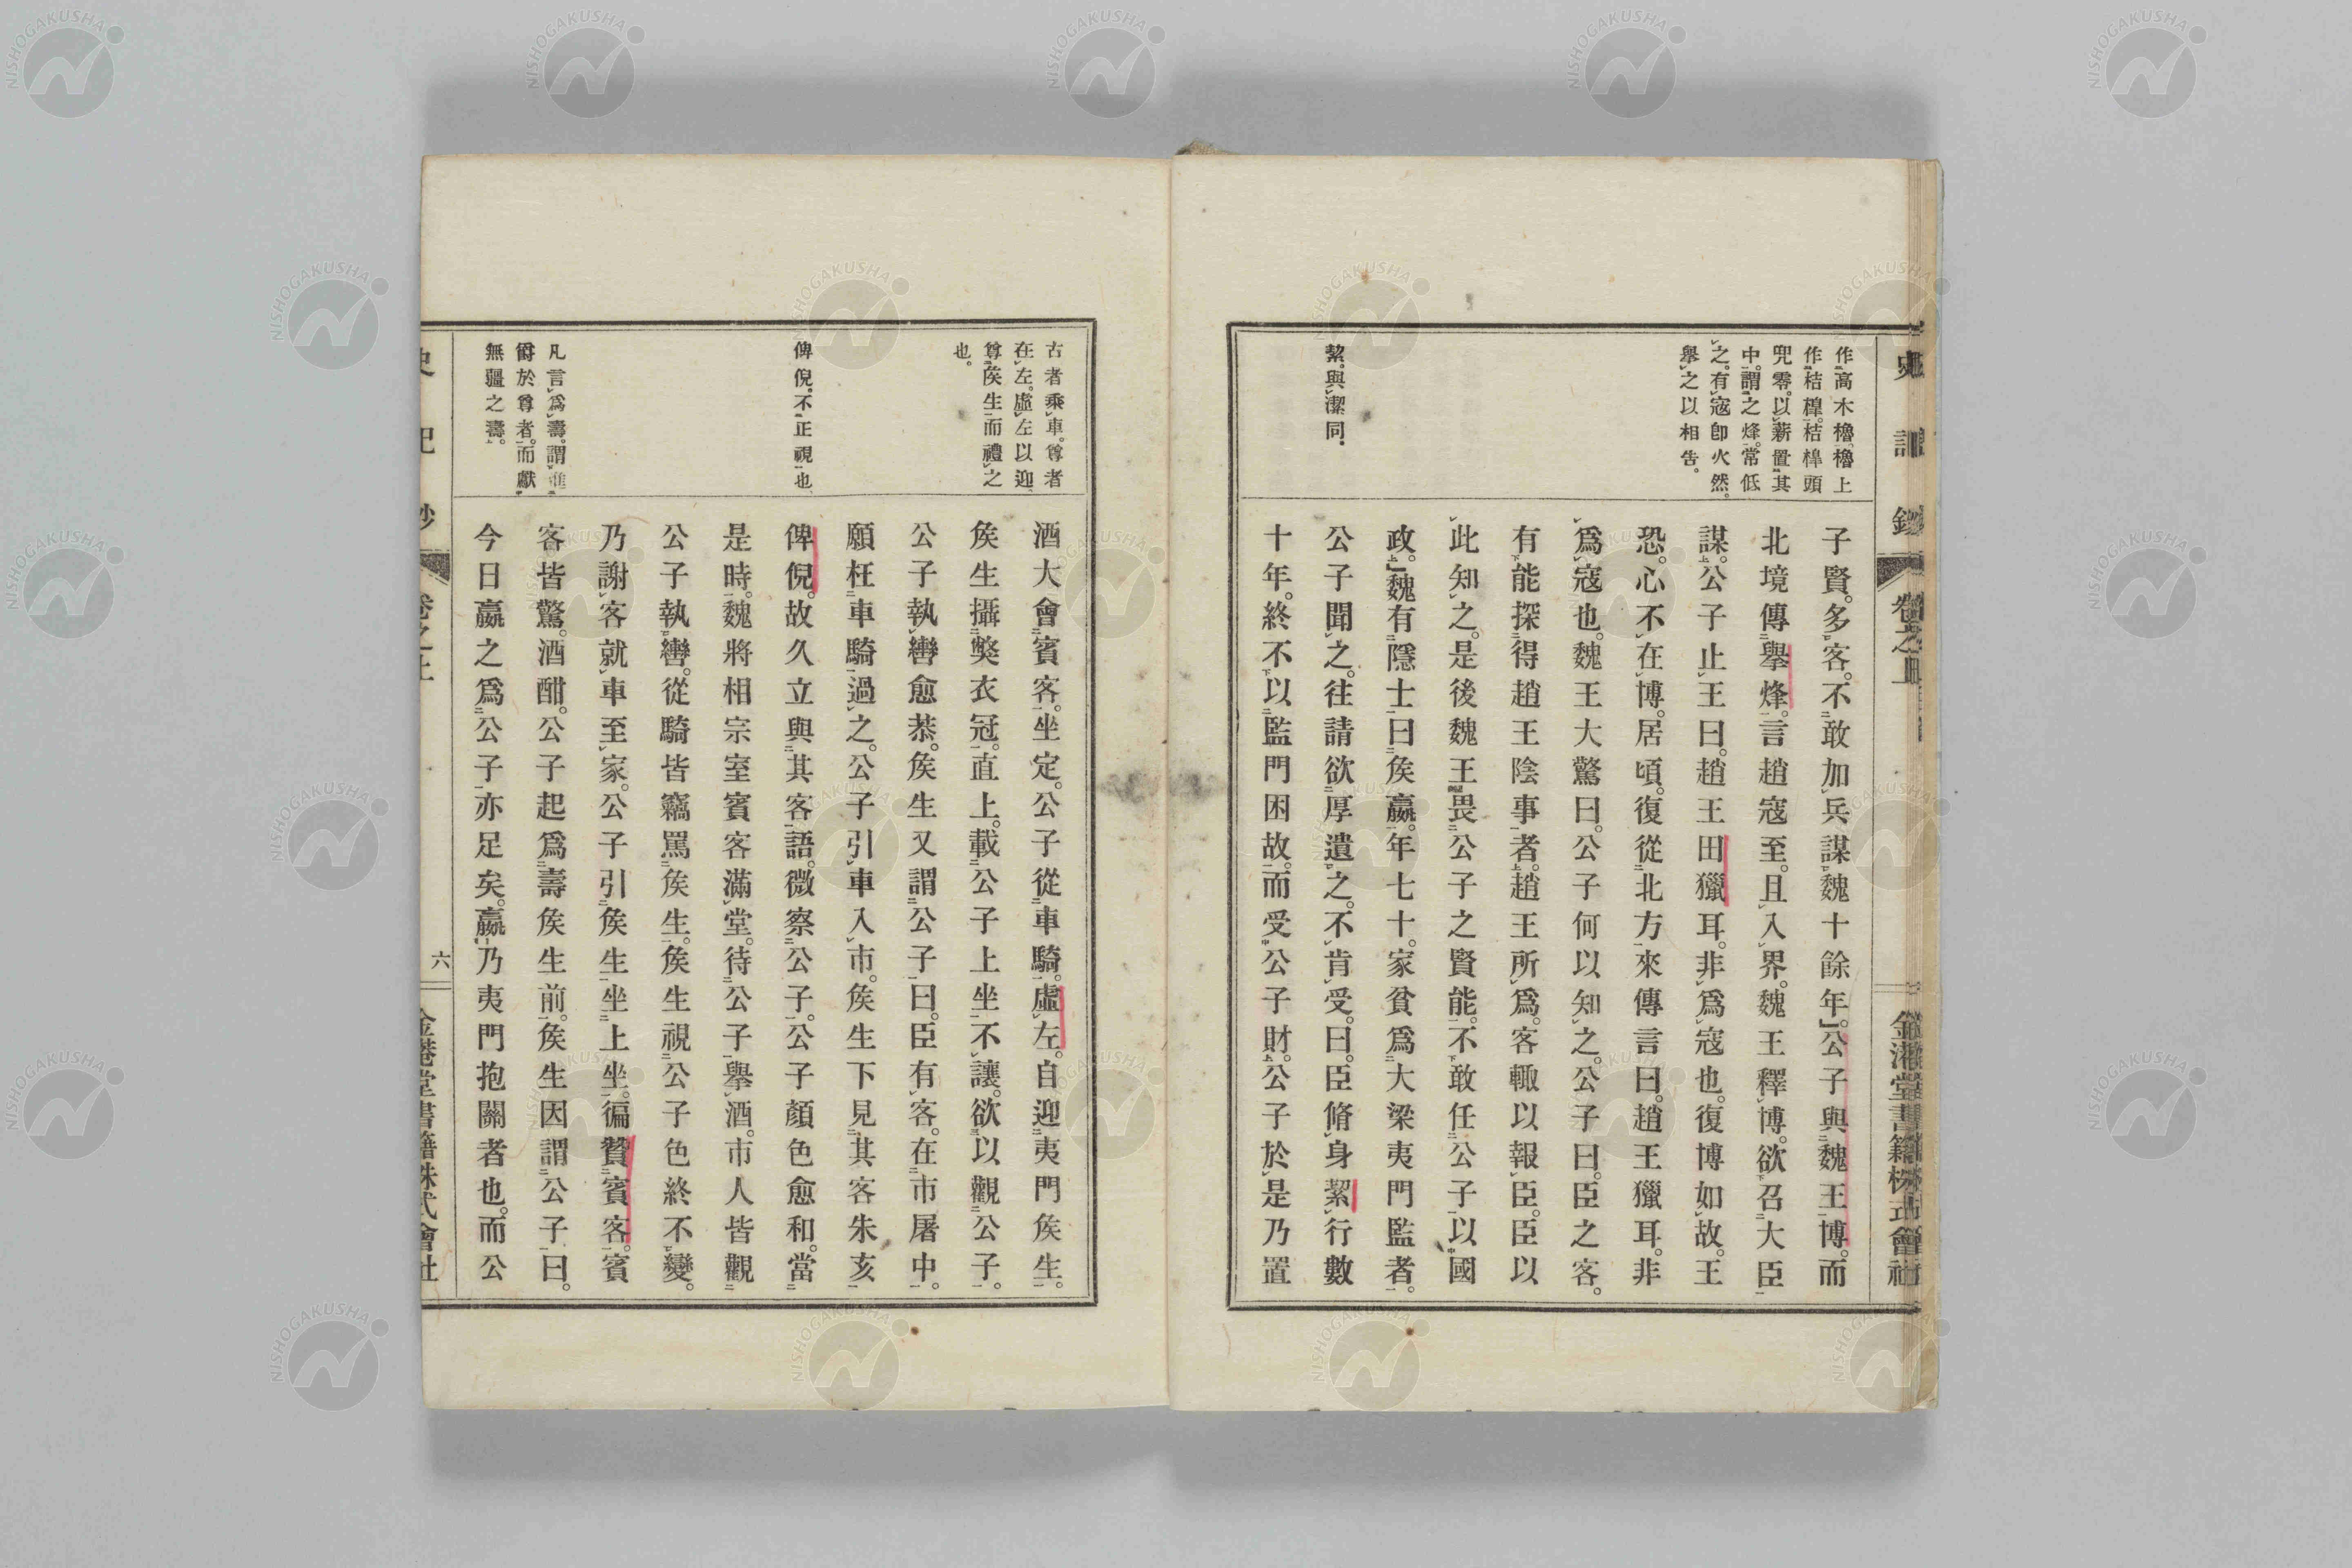 作高木櫓、櫓上
作桔槹。桔槹頭
兜零。以薪置其
中。謂之烽。常低
之。有寇卽火然。
擧之以相告。
絜。與潔同。
子賢。多客。不敢加兵謀魏十餘年。公子與魏王博。而
北境傳擧烽。言趙寇至。且入界。魏王釋博。欲召大臣
謀。公子止王曰。趙王田獵耳。非爲寇也。復博如故。王
恐。心不在博。居頃。復從北方來傳言曰。趙王獵耳。非
爲寇也。魏王大驚曰。公子何以知之。公子曰。臣之客。
有能探得趙王陰事者。趙王所爲。客輙以報臣。臣以
此知之。是後魏王畏公子之賢能。不敢任公子以國
政。魏有隱士曰侯嬴。年七十。家貧爲大梁夷門監者。
公子聞之。往請欲厚遺之。不肯受。曰。臣脩身絜行數
十年。終不以監門困故。而受公子財。公子於是乃置
古者乘車。尊者
在左。虛左以迎
尊矦生而禮之
也。
俾倪。不正視也
凡言爲壽。謂進
爵於尊者。而獻
無疆之壽。
酒大會賓客。坐定。公子從車騎。虛左。自迎夷門矦生。
矦生攝獘衣冠。直上。載公子上坐不讓。欲以觀公子。
公子執轡愈恭。矦生又謂公子曰。臣有客。在市屠中。
願枉車騎過之。公子引車入市。矦生下見其客朱亥
俾倪。故久立與其客語。微察公子。公子顏色愈和。當
是時。魏將相宗室賓客滿堂。待公子擧酒。市人皆觀
公子執轡。從騎皆竊罵矦生。矦生視公子色終不變。
乃謝客就車至家。公子引矦生坐上坐。徧贊賓客。賓
客皆驚。酒酣。公子起爲壽矦生前。矦生因謂公子曰。
今日嬴之爲公子亦足矣。嬴乃夷門抱關者也。而公
六
NISHOGAKUSHA